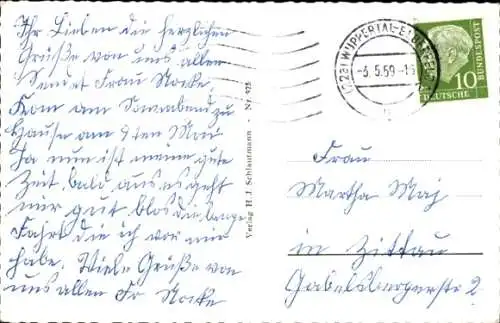 Ihr Lieben die herzlichen
Grüße von uns allen
Sendet Frau Nocke.
Kom am Sonnabend zu
Hause am 9ten Mai
Ja nun ist meine gute
Zeit bald aus es geht
mir gut blos die lange
Fahrt die ich vor mir
habe. Viele Grüße von
uns allen Fr Nocke
Verlag H. J. Schlautmann - Nr. 925
(22a) WUPPERTAL-E
-3. 5. 59 -1
10
DEUTSCHE
BUNDESPOST
Frau
Martha May
in Zittau
Gabelsbergerstr 2